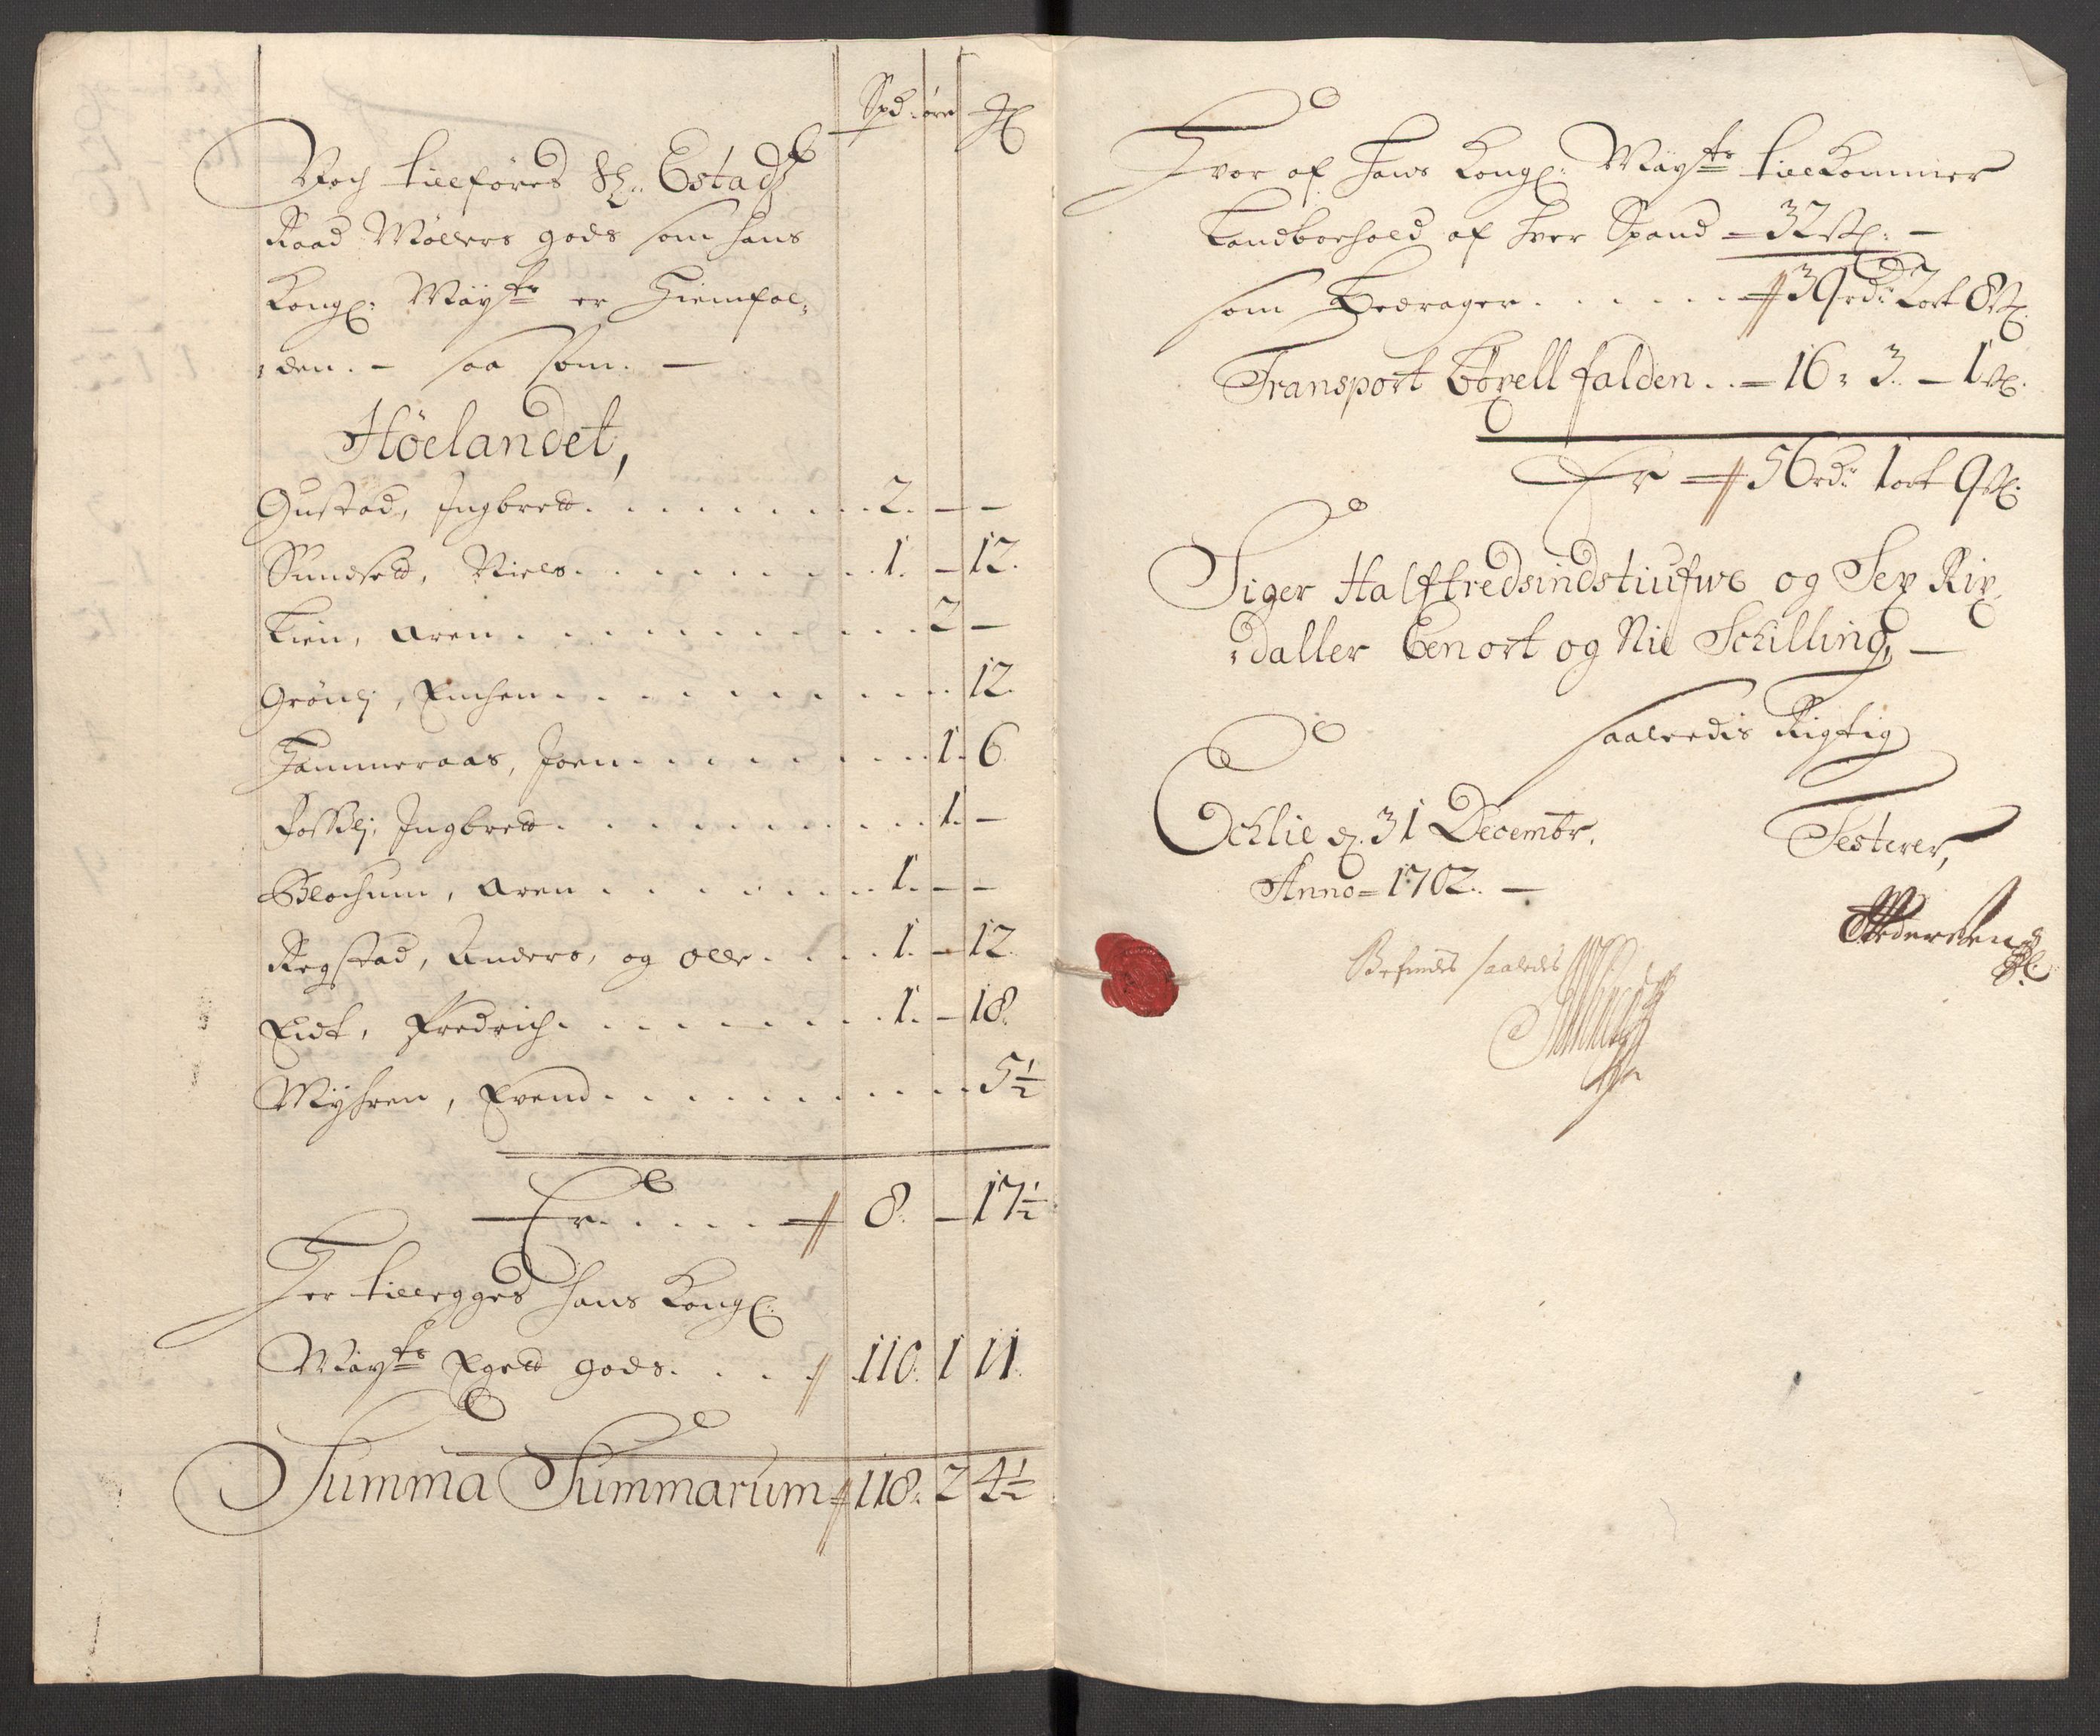 Spd. øre
Noch tillføres Sl. Estadtz
Raad Møllers gods som hans
Kongl: Mayts er Hiemfal-
den. - saa som. -
Høelandet,
Gustad, Ingbret . . . 2. - -
Sundset, Niels . . . 1. - 12.
Lien, Aren . . . 2 -
Grønli, Enchen . . . 12.
Hammeraas, Joen . . . 1. 6
Fossli, Ingbret . . . 1. -
Blochum, Aren . . . 1. - -
Regstad, Anders, og Olle . . . 1. - 12.
Eidt, Fredrich . . . 1. - 18.
Myhren, Evend . . . 5½
Er . . . 8. - 17½
Her tillegges hans Kongl:
Mayts Eget gods . . . 110. 1 11.
Summa Summarum 118. 2 4½
Hvor af Hans Kongl: Mayts tilkommer
Landboehold af hver Spand - 32 sk: -
som bedrager . . . 39 rd 2 ort 8 sk.
Transport bøxell falden . . - 16 - 3. - 1 sk.
Er 56 rd 1 ort 9 sk.
Siger Halftredsindstiufwe og Sex Rix
daller Een ort og Nie Schilling, -
saaledis Rigtig
Echlie d. 31 Decembr.
Testerer,
Anno - 1702. -
Pedersen
Befindes saaledes